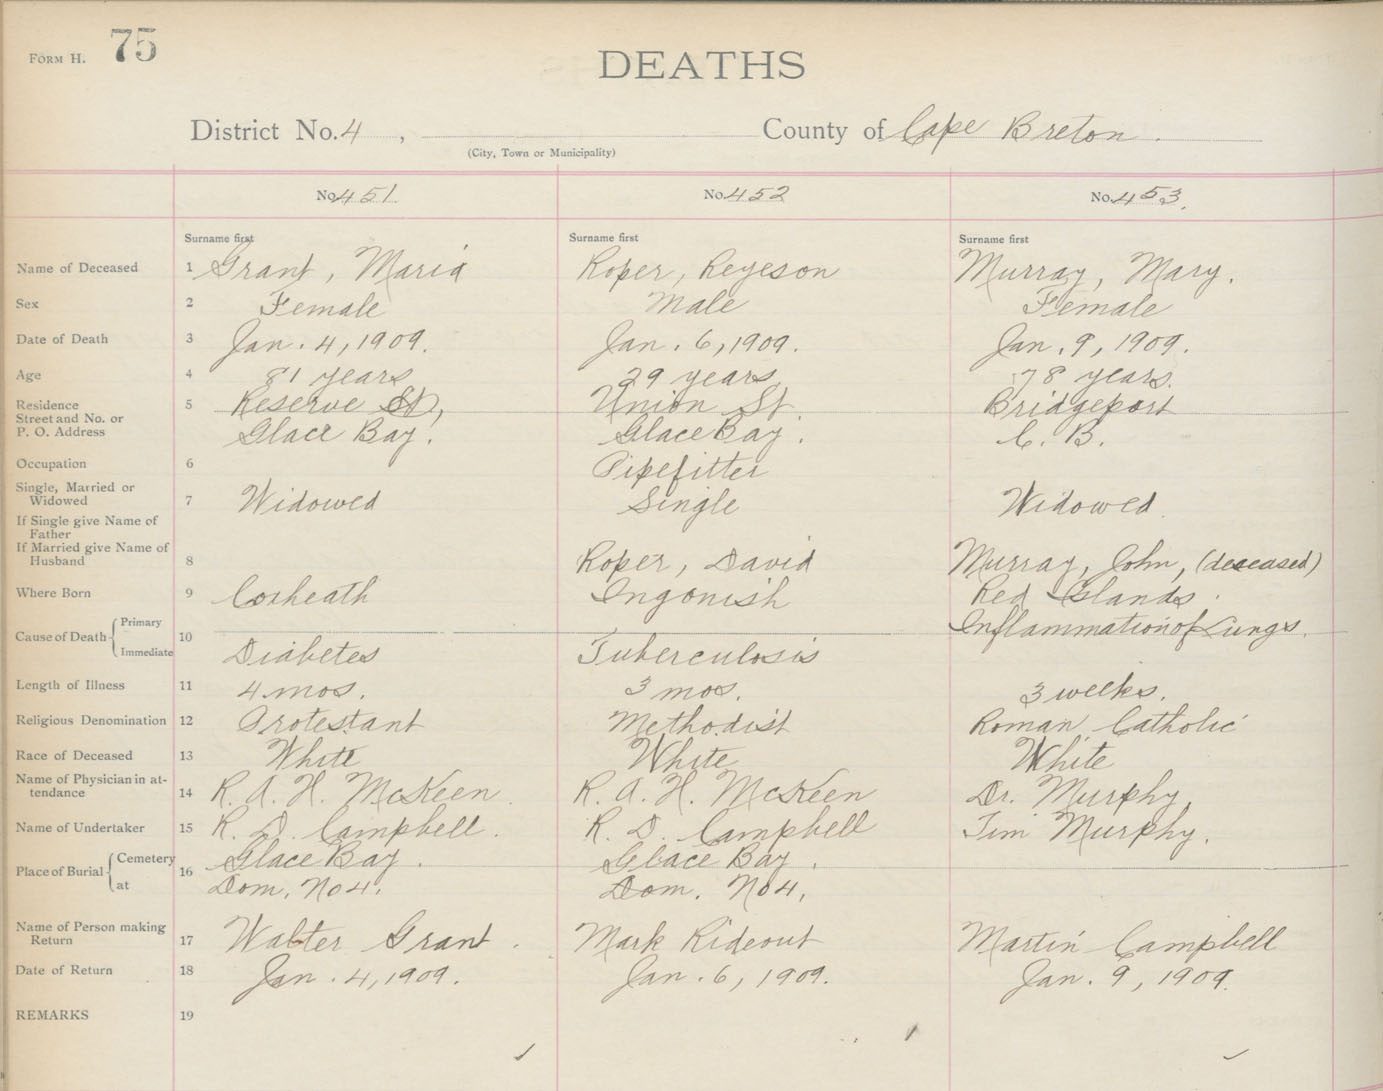 FORM H. 75
DEATHS
District No. 4 , County of Cape Breton.
(City, Town or Municipality)
No. 451. No. 452 No. 453.
Surname first Surname first Surname first
Name of Deceased 1 Grant, Maria Roper, Murray, Mary.
Sex 2 Female Male Female
Date of Death 3 Jan. 4, 1909. Jan. 6, 1909. Jan. 9, 1909.
Age 4 81 years 29 years 78 years.
Residence 5 Reserve St, Union St. Bridgeport
Street and No. or
P. O. Address Glace Bay. Glace Bay. C. B.
Occupation 6 Pipefitter
Single, Married or
Widowed 7 Widowed Single Widowed
If Single give Name of
Father
If Married give Name of
Husband 8 Roper, David Murray, John, (deceased)
Where Born 9 Coxheath Ingonish Red Islands.
Cause of Death Primary Inflammation of Lungs.
10
Immediate Diabetes Tuberculosis
Length of Illness 11 4 mos. 3 mos. 3 weeks.
Religious Denomination 12 Protestant Methodist Roman Catholic
Race of Deceased 13 White White White
Name of Physician in at-
tendance 14 R. A. H. McKeen R. A. H. McKeen Dr. Murphy,
Name of Undertaker 15 R. D. Campbell. R. D. Campbell Tim Murphy.
Place of Burial Cemetery 16 Glace Bay. Glace Bay.
at Dom. No 4. Dom. No 4,
Name of Person making
Return 17 Walter Grant. Mark Rideout Martin Campbell
Date of Return 18 Jan. 4, 1909. Jan. 6, 1909. Jan. 9, 1909.
REMARKS 19